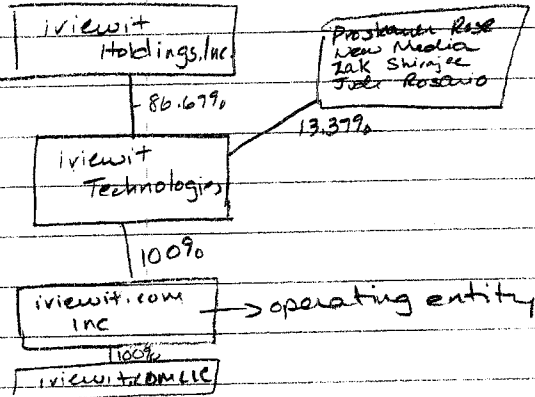 iviewit
Holdings, Inc.
Proskauer Rose
New Media
Zak Shirajee
Jude Rosario
86.67%
13.37%
iviewit
Technologies
100%
iviewit.com
Inc
→ operating entity
100%
iviewit.com LLC